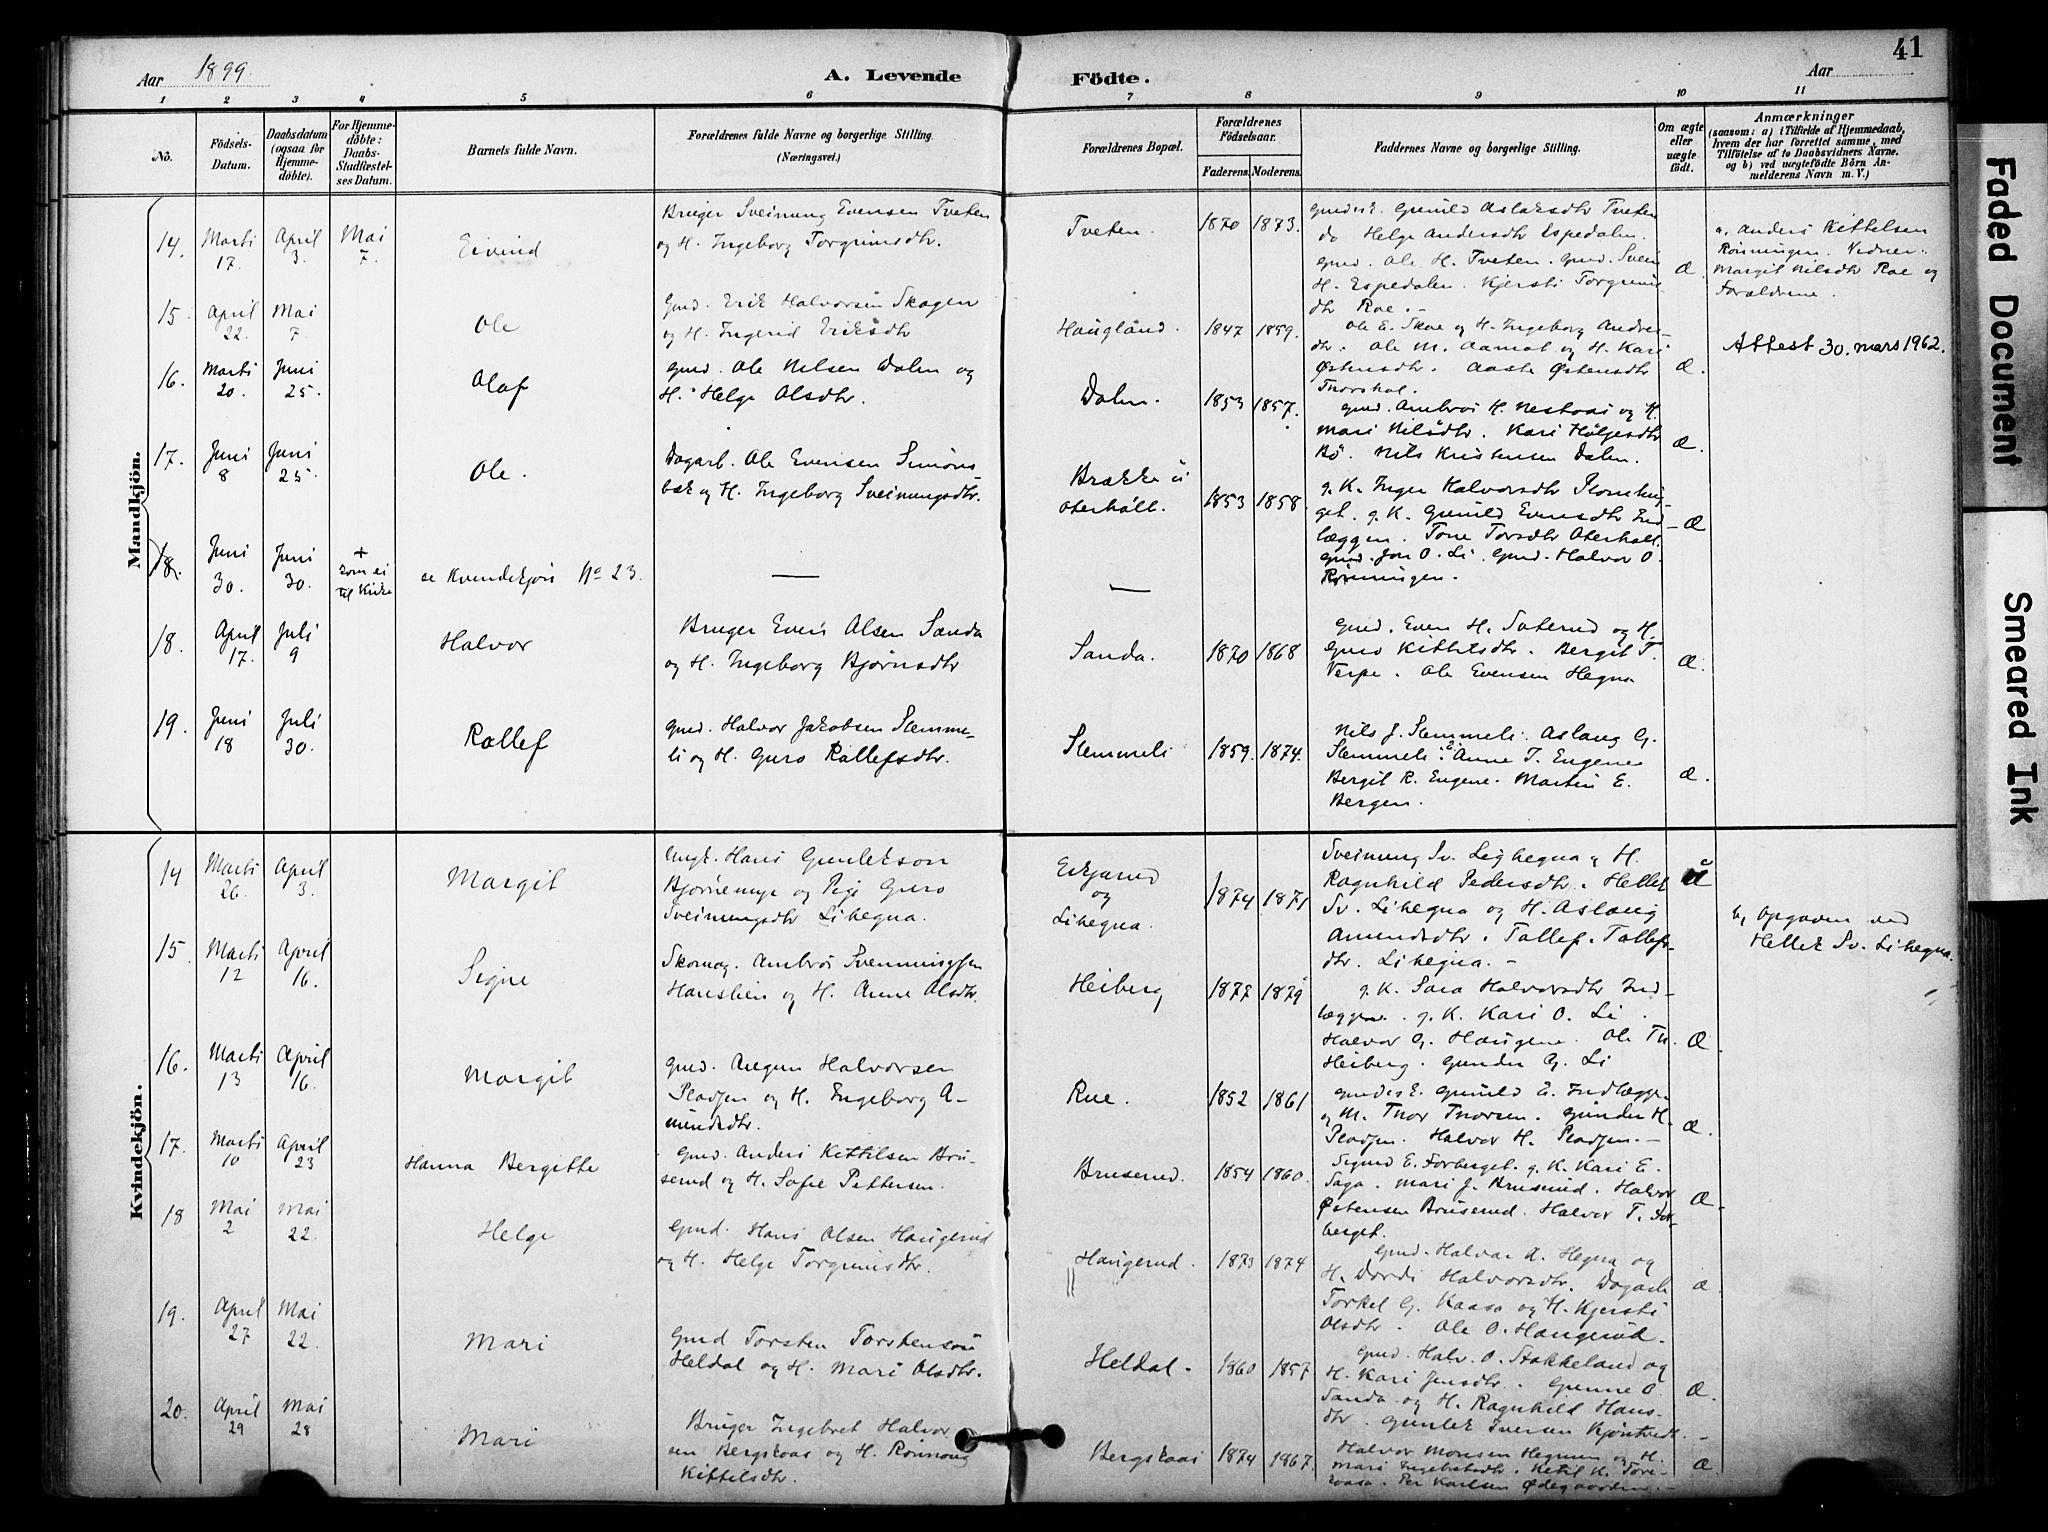 Aar 1899.
A. Levende
Födte.
Aar
41
1 2 3 4 5 6 7 8 9 10 11
No.
Födsels-Datum.
Daabsdatum (ogsaa for Hjemme-döbte).
For Hjemme-döbte: Daabs-Stadfæstel-ses Datum.
Barnets fulde Navn.
Forældrenes fulde Navne og borgerlige Stilling.
(Næringsvei.)
Forældrenes Bopæl.
Forældrenes Födselsaar.
Faderens. Moderens.
Faddernes Navne og borgerlige Stilling.
Om ægte eller uægte født.
Anmærkninger
(saasom: a) i Tilfælde af Hjemmedaab,
hvem der har forrettet samme, med
Tilföielse af to Daabsvidners Navne.
og b) ved uægtefödte Börn An-
melderens Navn m. V.)
Mandkjön.
14. Marti 17. April 3. Mai 7. Eivind
Bruger Sveinung Evensen Tveten
og H. Ingeborg Torgrimsdtr.
Tveten. 1870 1873.
Gmdesk. Gunild Aslaksdtr Tveten
do Helge Andersdtr Espedalen.
Gmd. Ole H. Tveten. Gmd. Svein
H. Espedalen. Kjersti Torgrims-
dtr Roe. -
Æ.
a, Anders Kittelsen
Rønningen. Vidner.
Margit Nilsdtr Roe og
Forældrene.
15. April 22. Mai 7. Ole
Gmd. Erik Halvorsen Skogen
og H. Ingerid Eriksdtr
Haugland. 1847 1859.
Ole E. Skoe og H. Ingeborg Anders-
dtr. Ole M. Aamot og H. Kari
Østensdtr. Aaste Østensdtr
Thorshol.
Æ.
Attest 30. mars 1962.
16. Marti 20. Juni 25. Olaf
Gmd. Ole Nilsen Dalen og
H. Helge Olsdtr.
Dalen. 1853 1857.
Gmd. Ambros H. Nestaas og H.
Mari Nilsdtr. Kari Høljesdtr
Bö. Nils Kristensen Dalen.
Æ
17. Juni 8 Juni 25. Ole.
Dagarb. Ole Evensen Simons-
bæk og H. Ingeborg Sveinungsdtr.
Brække u
Oterholt. 1853 1858
g. K. Inger Halvorsdtr
g. K. Gunild Evensdtr Ind-
læggen. Tone Torsdtr Oterholt.
Gmd. Jon O. Li. Gmd. Halvor O.
Rønningen.
Æ
18. Juni 30. Juni 30. + som ei til Kirke
se Kvindekjön No 23. — —
18. April 17. Juli 9 Halvor
Bruger Even Olsen Sanda
og H. Ingeborg Bjørnsdtr
Sanda. 1870 1868
Gmd. Even H. Saterud og H.
Guro Kittelsdtr. Bergit T.
Verpe. Ole Evensen Hegna
Æ.
19. Juni 18 Juli 30. Rollef
Gmd. Halvor Jakobsen Slemme-
li og H. Guro Rollefsdtr.
Slemmeli 1859. 1874.
Nils J. Slemmeli. Aslaug G.
Slemmeli. Anne T. Eugene
Bergit R. Eugene. Martin E.
Bergen.
Æ.
Kvindekjön.
14 Marti 26. April 3. Margit
Ungk. Hans Gunlekson
Bjørnemyr og Pige Guro
Sveinungsdtr Lihegna.
Eikjarud
og
Lihegna. 1874 1871
Sveinung Sv. Lihegna og H.
Ragnhild Pedersdtr. Hellek
Sv. Lihegna og H. Aslaug
Amundsdtr. Tollef. Tollefs-
dtr. Lihegna. -
b, Opgaven ved
Hellek Sv. Lihegna.
15 Marti 12 April 16. Signe
Skomag. Ambros Svenningsen
Haneslien og H. Anne Olsdtr.
Heiberg 1877 1879
g. K. Sara Halvorsdtr Ind-
læggen. g. K. Kari O. Li.
Halvor G. Haugene. Ole Th.
Heiberg. Gunder G. Li
Æ.
16. Marti 13 April 16. Margit
Gmd. Augun Halvorsen
Pladsen og H. Ingeborg A-
mundsdtr.
Rue. 1852 1861
Gmdesk. Gunild E. Indlægg.
og M. Thor Thorsen. Gunder H.
Pladsen. Halvor H. Pladsen. -
Æ.
17. Marti 10 April 23 Hanna Bergitte
Gmd. Anders Kittilsen Bru-
serud og H. Sofie Pettersen.
Bruserud. 1854 1860.
Sigurd E. Forberget. g. K. Kari E.
Saga. Mari J. Bruserud. Halvor
Østensen Bruserud. Halvor T. For-
berget.
Æ.
18 Mai 2 Mai 22. Helge
Gmd. Hans Olsen Haugerud
og H. Helge Torgrimsdtr.
Haugerud. 1873 1874
Gmd. Halvor A. Hegna og
H. Dordi Halvorsdtr. Dagarb.
Torkel G. Kaasa og H. Kjersti
Olsdtr. Ole O. Haugerud.
Æ.
19. April 27 Mai 22. Mari
Gmd Torsten Torstenson
Heldal og H. Mari Olsdtr.
Heldal. 1860 1857
Gmd. Halv. O. Stokkeland og
H. Kari Jensdtr. Gunne O.
Sanda og H. Ragnhild Hans-
dtr. Gunlek Iversen
Æ.
20. April 29 Mai 28 Mari
Bruger Ingebret Halvor
sen Bergskaas og H. Rønnaug
Kittelsdtr.
Bergskaas 1874 1867.
Halvor Monsen Hegnen og H.
Mari Ingebretsdtr. Ketil K.
Per Karlsen Ødegaarden. -
Æ.
Faded Document
Smeared Ink